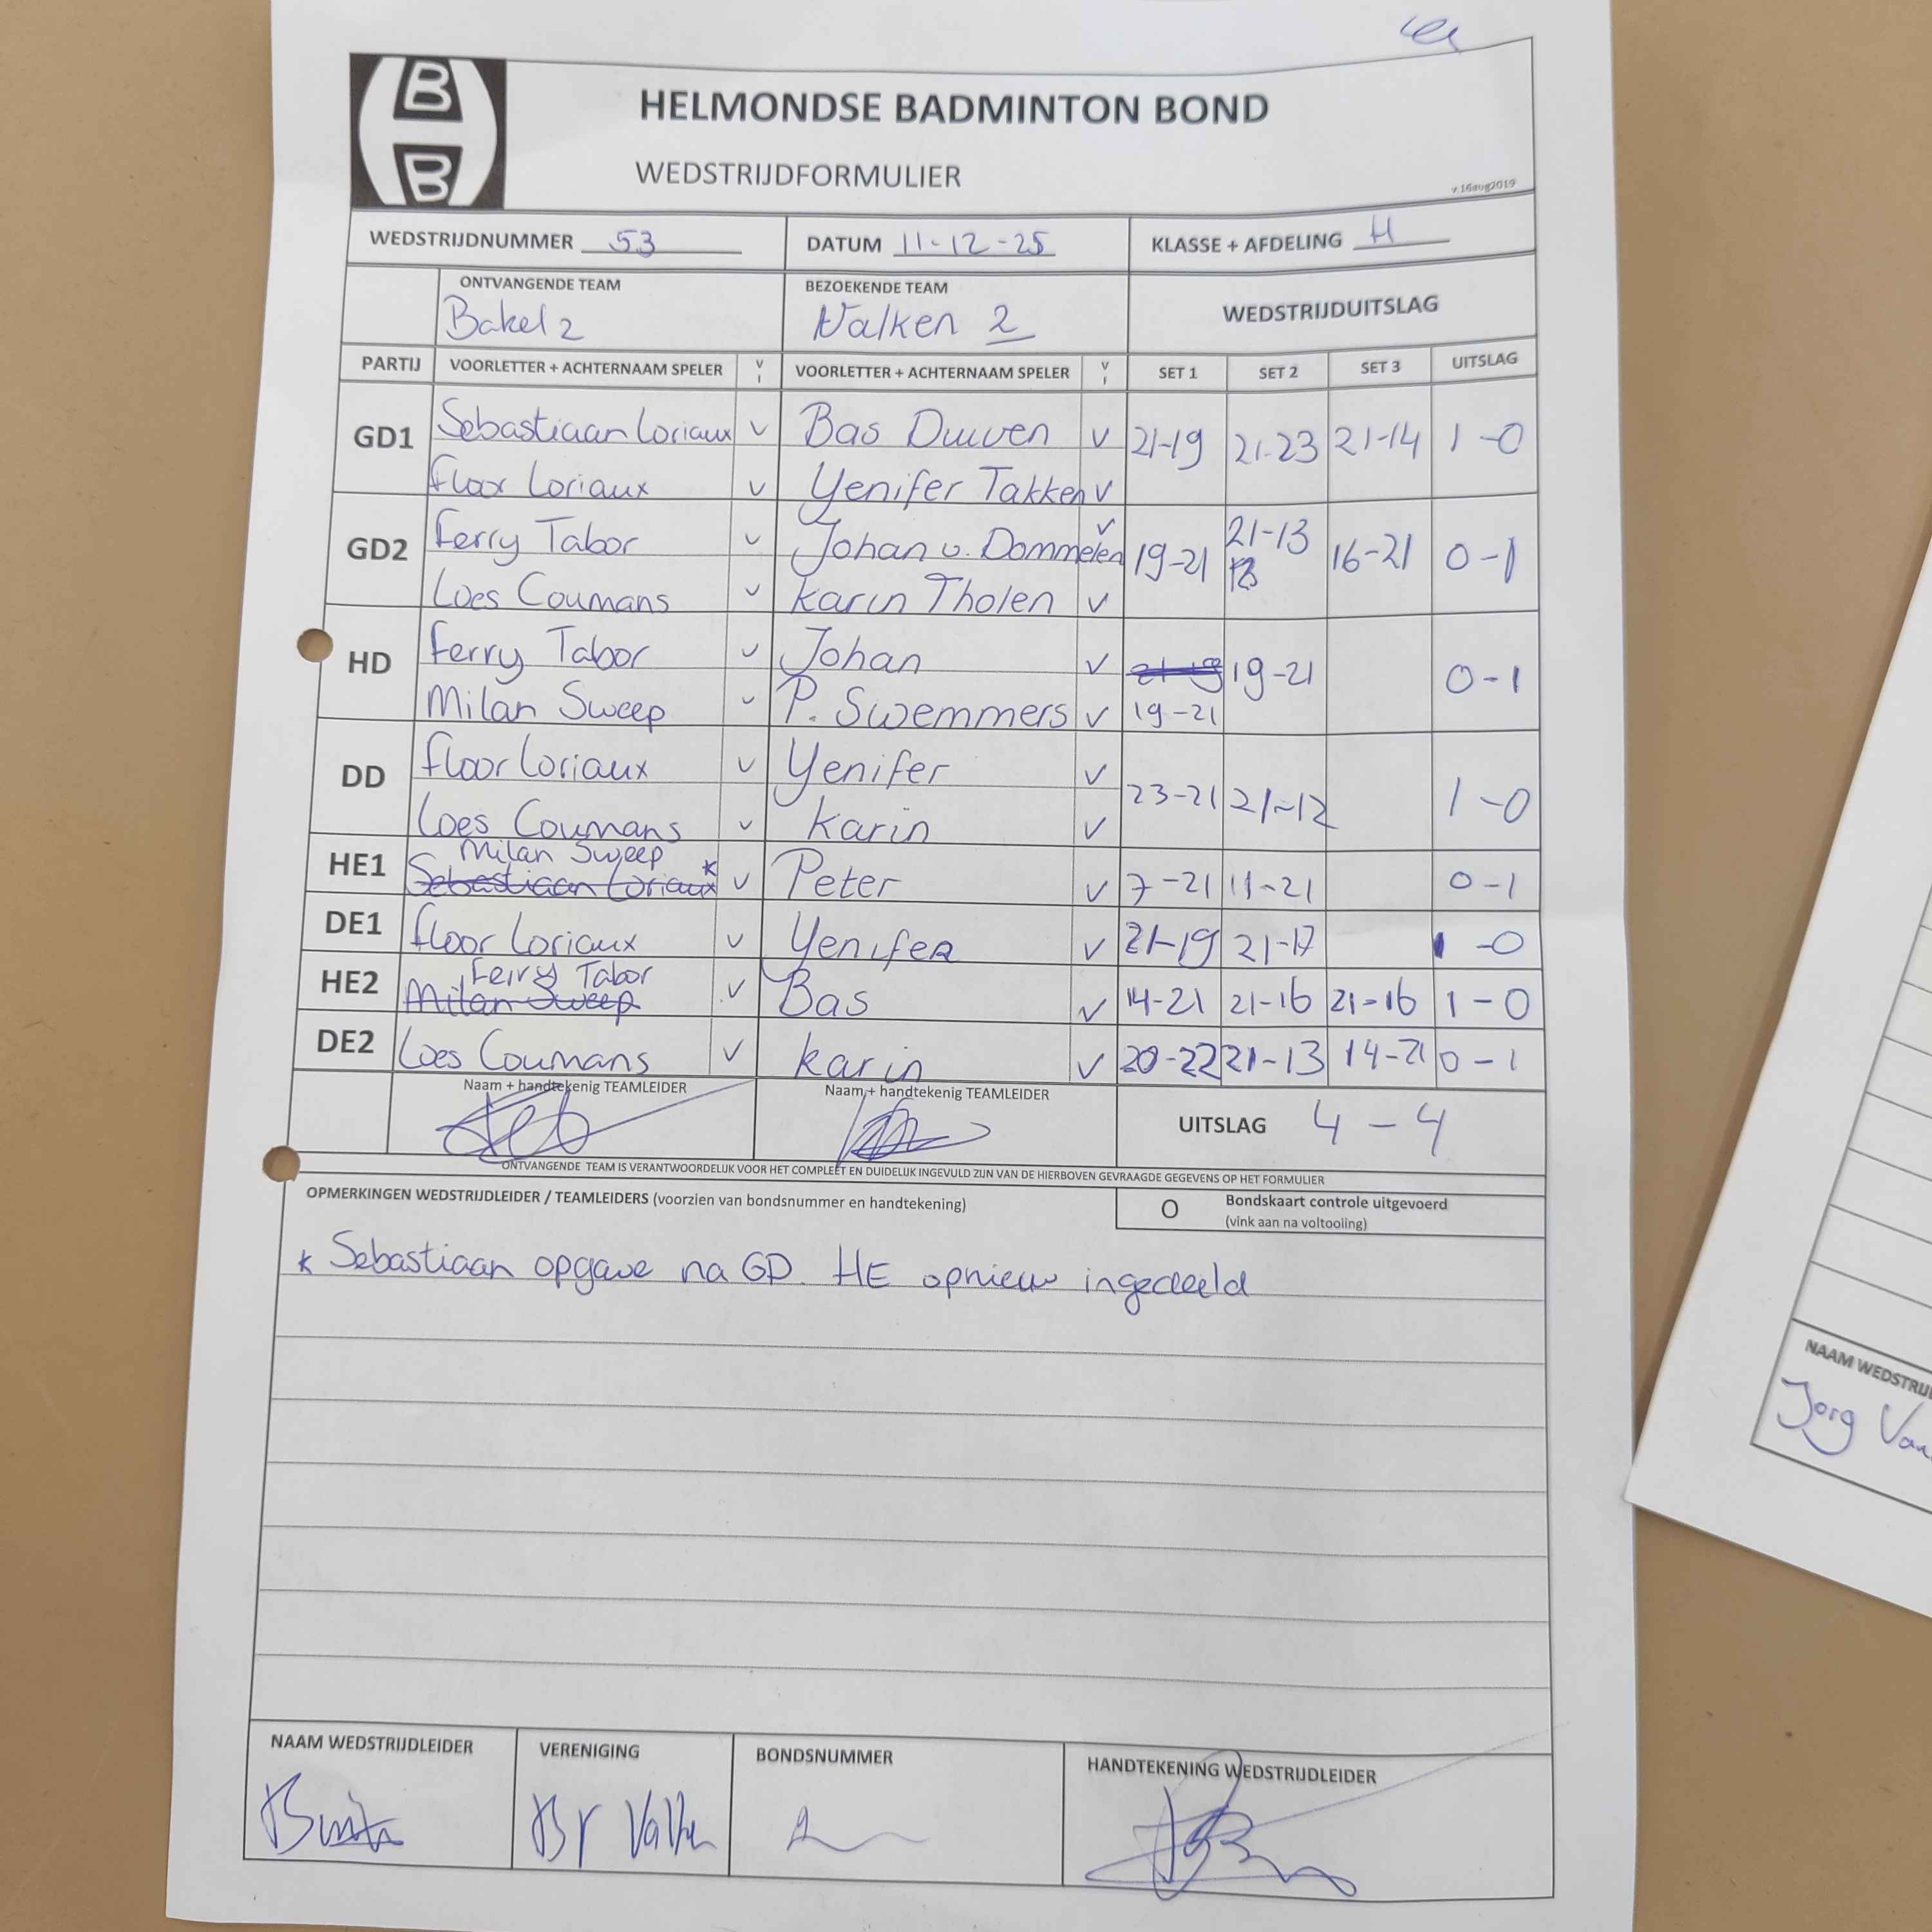 B
B
HELMONDSE BADMINTON BOND
WEDSTRIJDFORMULIER
v.16aug2019
WEDSTRIJDNUMMER 53 DATUM 11-12-25 KLASSE + AFDELING H
ONTVANGENDE TEAM BEZOEKENDE TEAM WEDSTRIJDUITSLAG
Bakel 2 Valken 2
PARTIJ VOORLETTER + ACHTERNAAM SPELER V I VOORLETTER + ACHTERNAAM SPELER V I SET 1 SET 2 SET 3 UITSLAG
GD1 Sebastiaan Loriaux v Bas Duiven v 21-19 21-23 21-14 1-0
Floor Loriaux v Yenifer Takken v
GD2 Ferry Tabor v Johan v. Dommelen v 19-21 21-13 16-21 0-1
Loes Coumans v Karin Tholen v
HD Ferry Tabor v Johan v 19-21 0-1
Milan Sweep v P. Swemmers v 19-21
DD Floor Loriaux v Yenifer v 23-21 21-12 1-0
Loes Coumans v Karin v
Milan Sweep
HE1 Sebastiaan Loriaux * v Peter v 7-21 11-21 0-1
DE1 Floor Loriaux v Yenifer v 21-19 21-17 1-0
Ferry Tabor
HE2 Milan Sweep v Bas v 14-21 21-16 21-16 1-0
DE2 Loes Coumans v Karin v 20-22 21-13 14-21 0-1
Naam + handtekenig TEAMLEIDER Naam + handtekenig TEAMLEIDER
UITSLAG 4-4
ONTVANGENDE TEAM IS VERANTWOORDELIJK VOOR HET COMPLEET EN DUIDELIJK INGEVULD ZIJN VAN DE HIERBOVEN GEVRAAGDE GEGEVENS OP HET FORMULIER
OPMERKINGEN WEDSTRIJDLEIDER / TEAMLEIDERS (voorzien van bondsnummer en handtekening) O Bondskaart controle uitgevoerd
(vink aan na voltooiing)
* Sebastiaan opgave na GD. HE opnieuw ingedeeld
NAAM WEDSTRIJDLEIDER VERENIGING BONDSNUMMER HANDTEKENING WEDSTRIJDLEIDER
NAAM WEDSTRIJ
Jorg Van